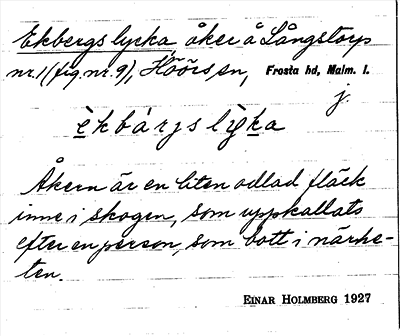 Ekbergs lycka åker å Långstorp
nr. 1 (fig. nr. 9), Höörs sn, Frosta hd, Malm. l.
j.
è̱kbárjslỳ̱ka
Åkern är en liten odlad fläck
inne i skogen, som uppkallats
efter en person, som bott i närhe-
ten.
EINAR HOLMBERG 1927